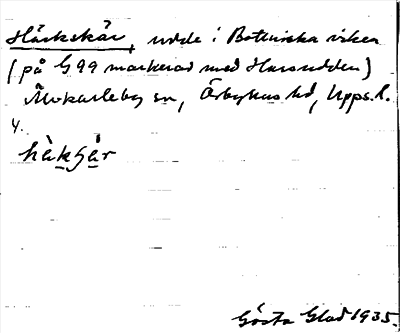 Häckskär, udde i Bottniska viken
(på G 99 markerad med Harsudden)
Älvkarleby sn, Örbyhus hd, Upps. l.
4.
häkʃär
Gösta Glad 1935.